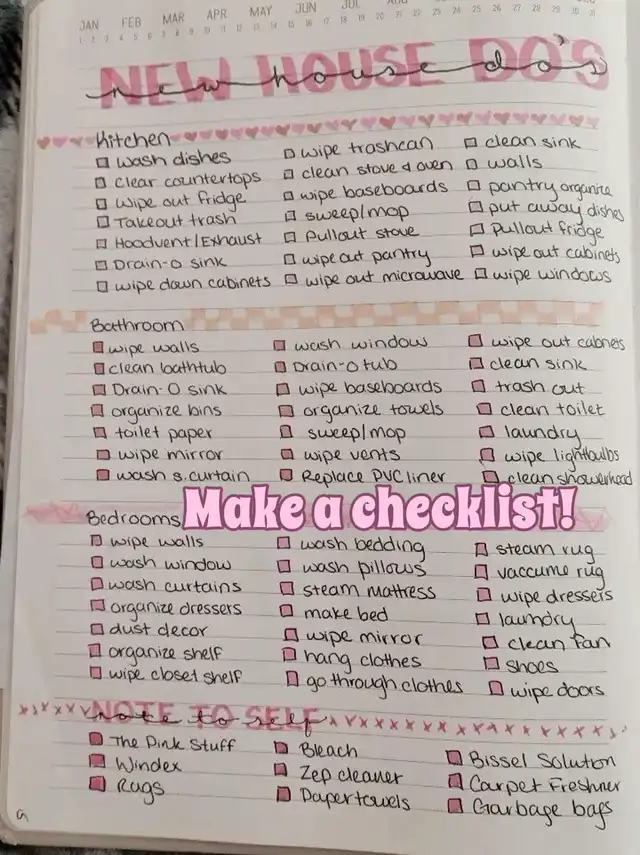 JAN FEB MAR APR MAY JUN JUL
NEW HOUSE DO'S
new house do's
Kitchen
wash dishes wipe trashcan clean sink
clear countertops clean stove & oven walls
wipe out fridge wipe baseboards pantry organize
Takeout trash sweep/mop put away dishes
Hoodvent/Exhaust Pullout stove Pullout fridge
Drain-o sink wipe out pantry wipe out cabinets
wipe down cabinets wipe out microwave wipe windows
Bathroom
wipe walls wash window wipe out cabnets
clean bathtub Drain-o tub clean sink
Drain-O sink wipe baseboards trash out
organize bins organize towels clean toilet
toilet paper sweep/mop laundry
wipe mirror wipe vents wipe lightbulbs
wash s.curtain Replace PVC liner clean showerhead
Make a checklist!
Bedrooms
wipe walls wash bedding steam rug
wash window wash pillows vaccume rug
wash curtains steam mattress wipe dressers
organize dressers make bed laundry
dust decor wipe mirror clean fan
organize shelf hang clothes shoes
wipe closet shelf go through clothes wipe doors
NOTE TO SELF
note to self
The Pink Stuff Bleach Bissel Solution
Windex Zep cleaner Carpet Freshner
Rags Papertowels Garbage bags